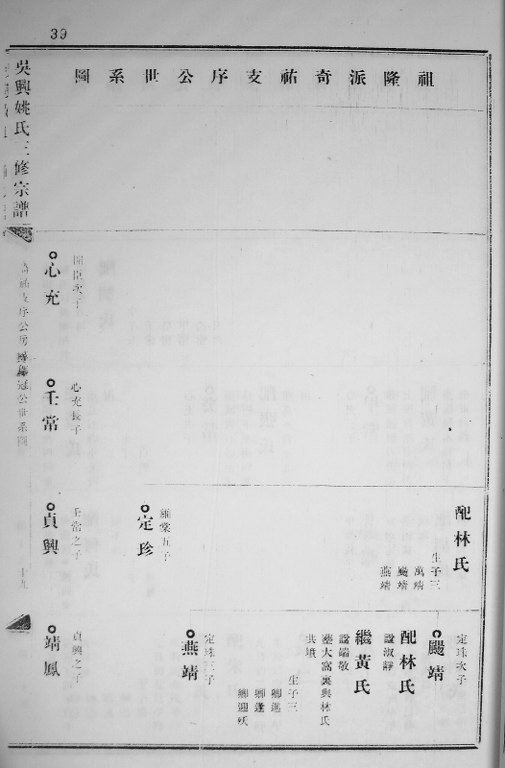 39
祖隆派奇祐支序公世系圖
配林氏
生子三
萬靖
颺靖
燕靖
維棠五子
定珍
壬常之子
貞興
心充長子
壬常
次子
心充
定珠次子
颺靖
配林氏
諡淑靜
繼黃氏
諡端敬
大富裏與林氏
共墳
生子三
定珠三子
燕靖
貞興之子
靖鳳
吳興姚氏三修宗譜
支序公房
冠公世系圖
十九